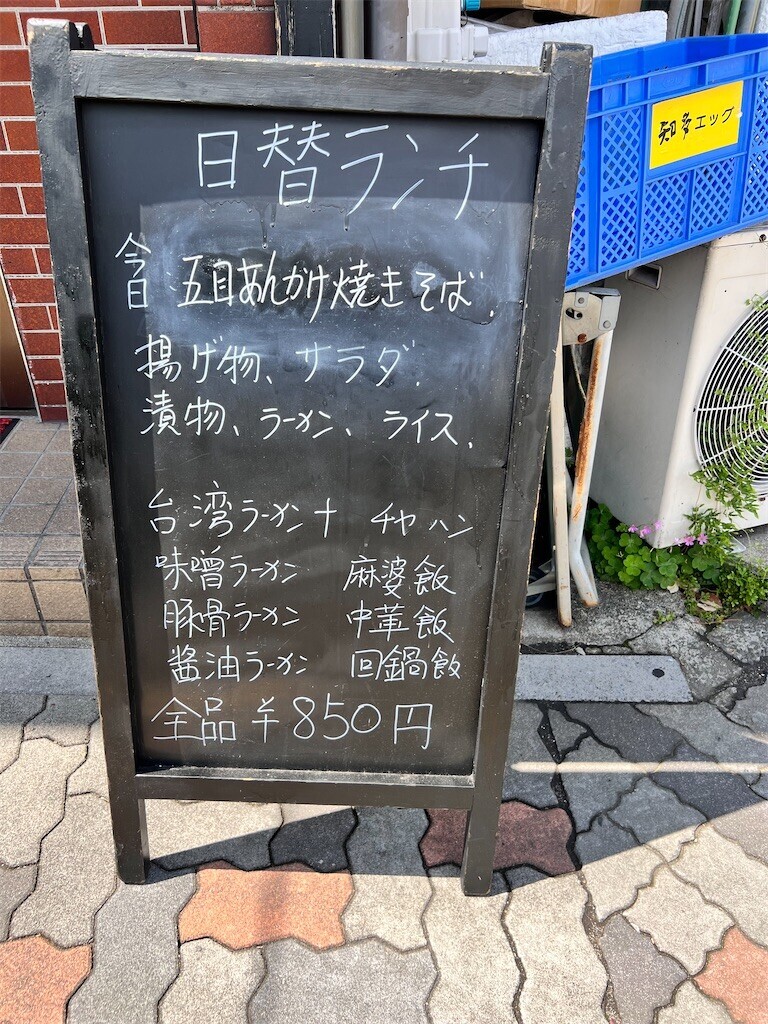 日替ランチ
今日 五目あんかけ焼きそば.
揚げ物、サラダ.
漬物、ラーメン、ライス.
台湾ラーメン + チャハン
味噌ラーメン 麻婆飯
豚骨ラーメン 中華飯
醤油ラーメン 回鍋飯
全品 ¥850円
知多エッグ